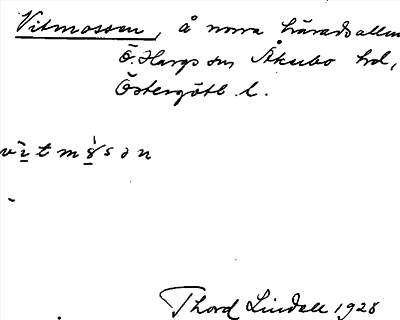 Vitmossen, å norra häradsallm
Ö. Hargs sn Åkerbo hd,
Östergötl. l.
vìtmɷ̀sən
Thord Lindell 1928